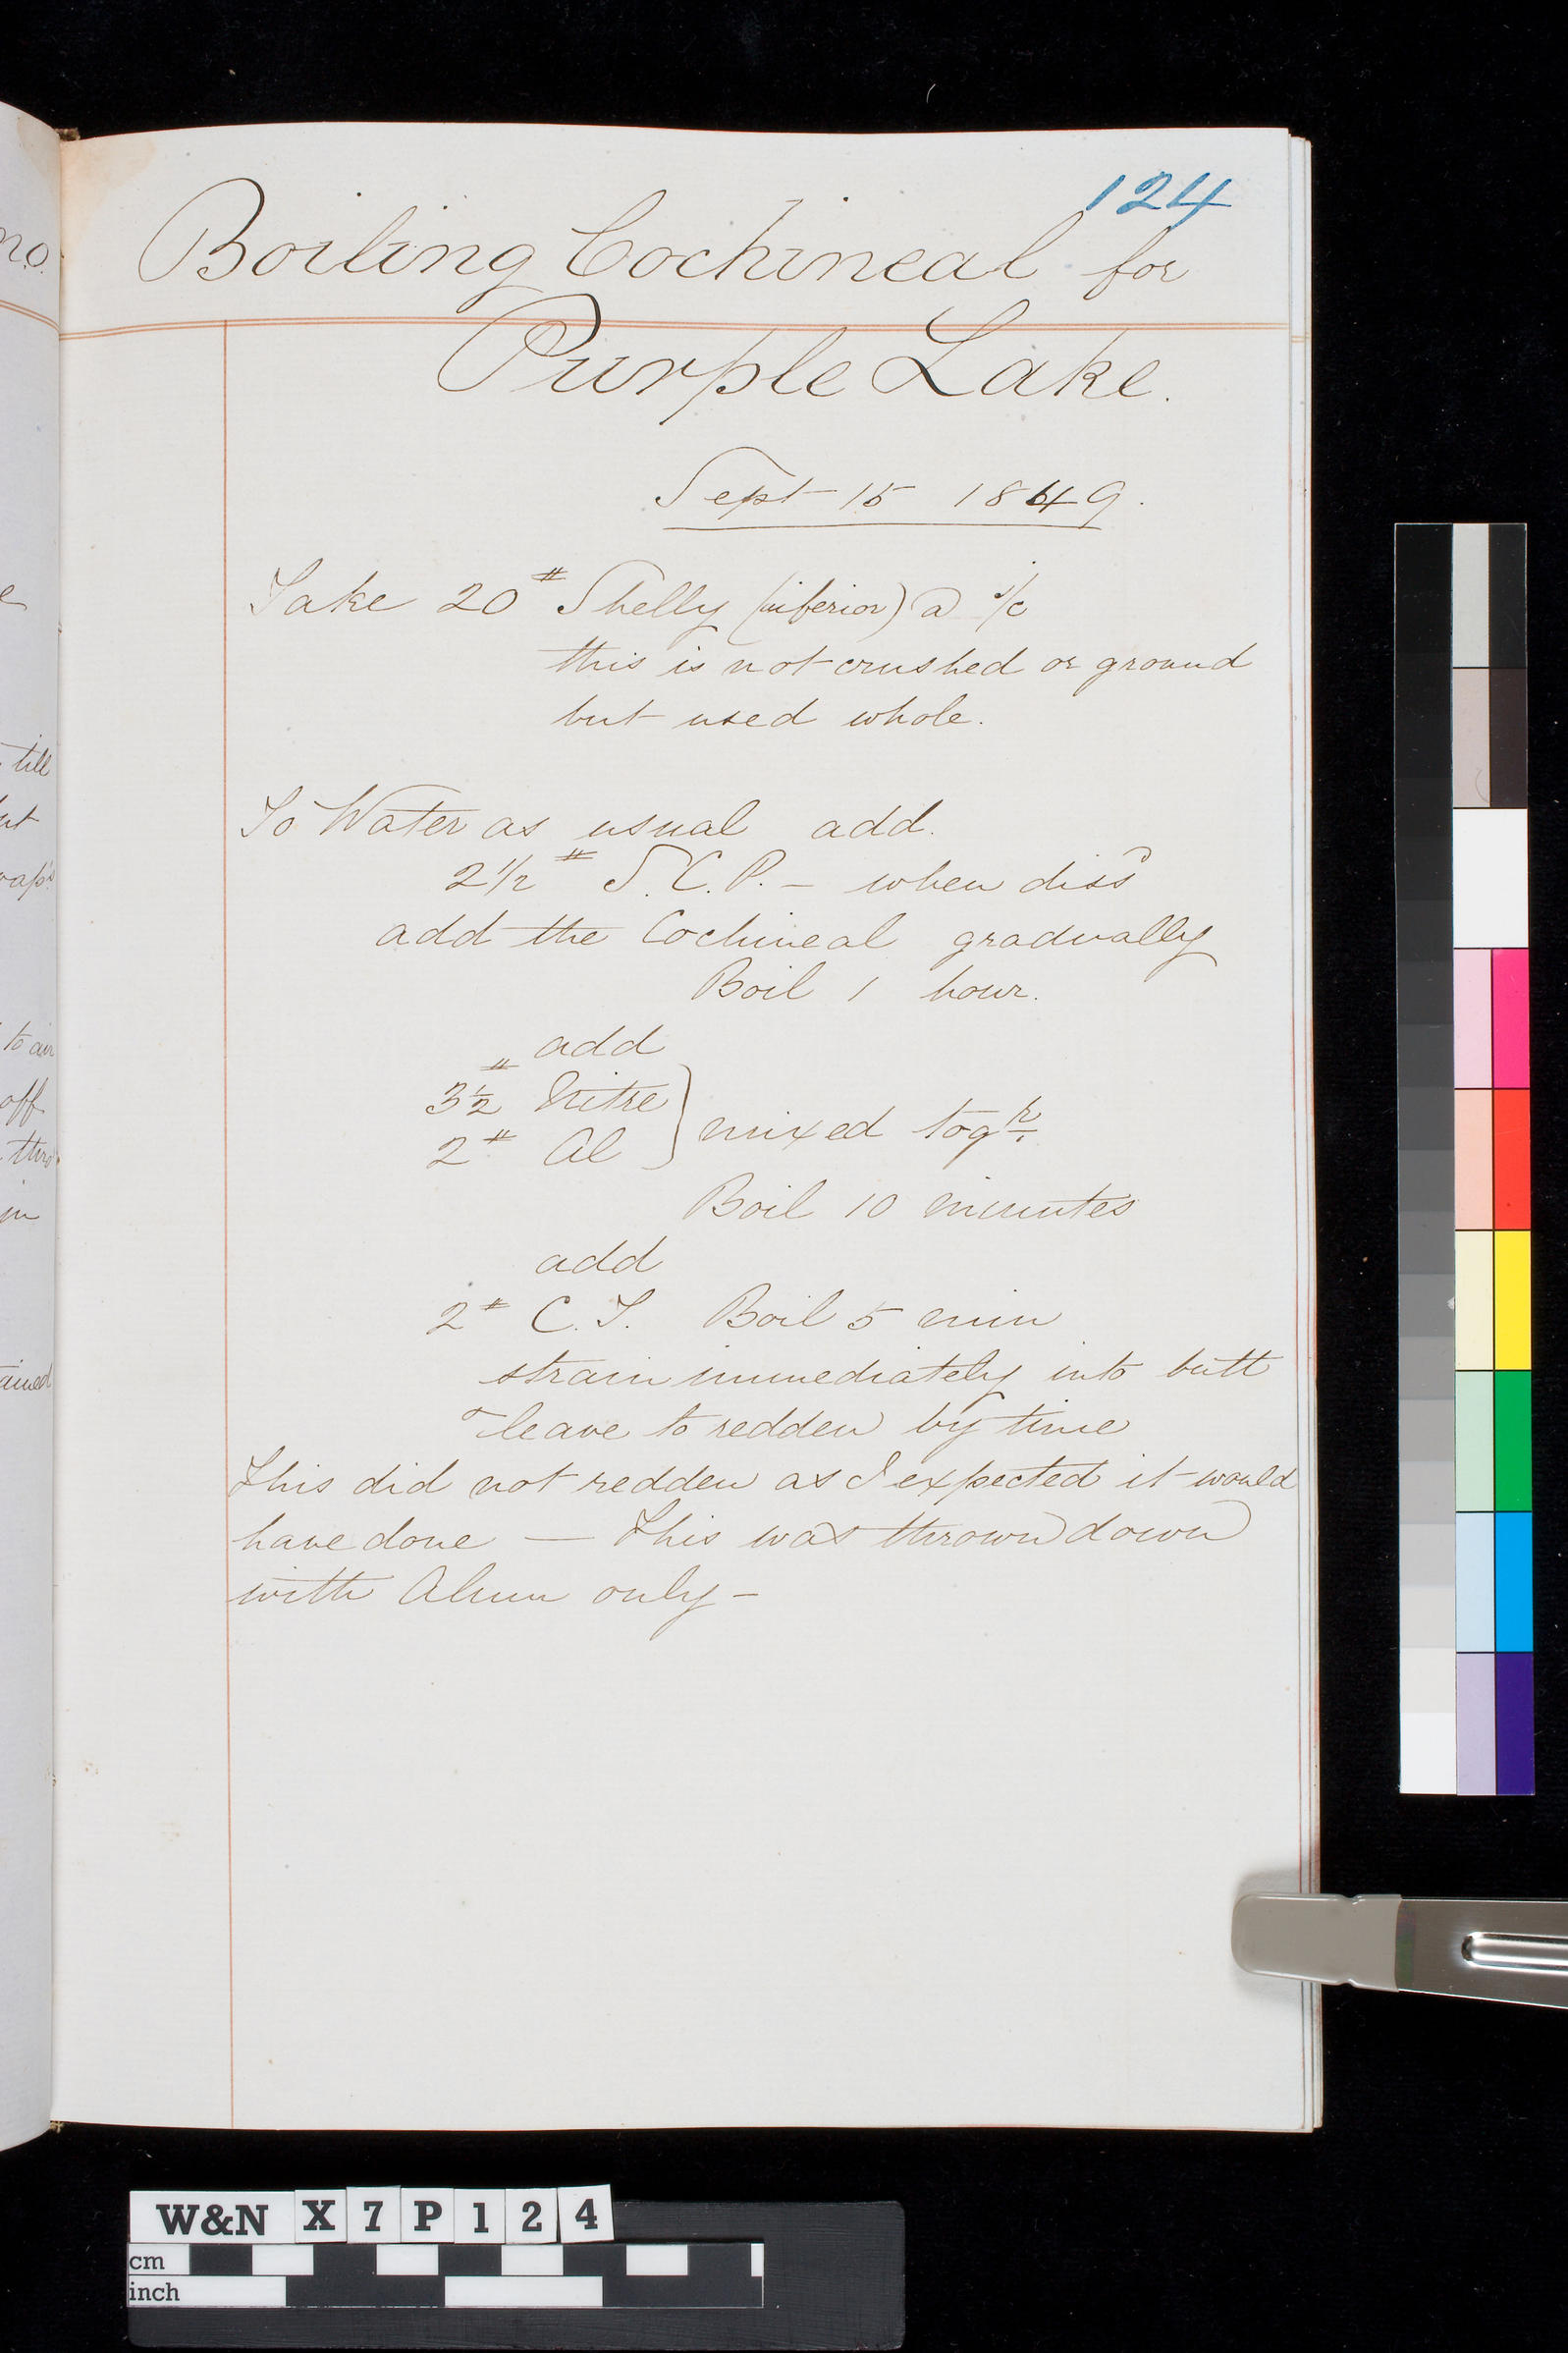 124
Boiling Cochineal for
Purple Lake.
Sept 15 1849.
Take 20 # Shelly (inferior) @
this is not crushed or ground
but used whole.
To Water as usual add.
2 1/2 # S.C.P. — when dissd
add the Cochineal gradually
Boil 1 hour.
add
3 1/2 # Nitre } mixed togr.
2 # Al
Boil 10 minutes
add
2 # C.T. Boil 5 min
strain immediately into butt
& leave to redden by time
This did not redden as I expected it would
have done — This was thrown down
with Alum only —
no.
e
till
to air
off
thro
in
W&N X7P124
cm
inch